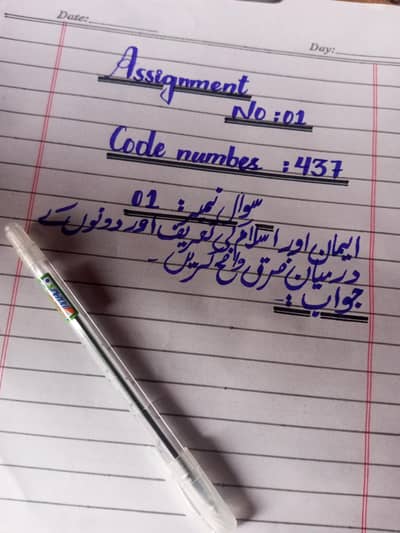 Date:
Day:
Assignment
No : 01
Code numbes : 437
سوال نمبر : 01
ایمان اور اسلام کی تعریف اور دونوں کے
درمیان فرق واضح کریں ۔
جواب :